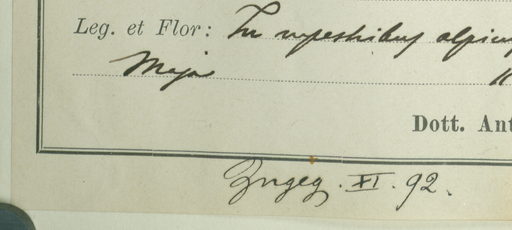 Leg. et Flor: In rupestribus alpin
Maja
Dott. Ant
Zngeg. XI. 92.